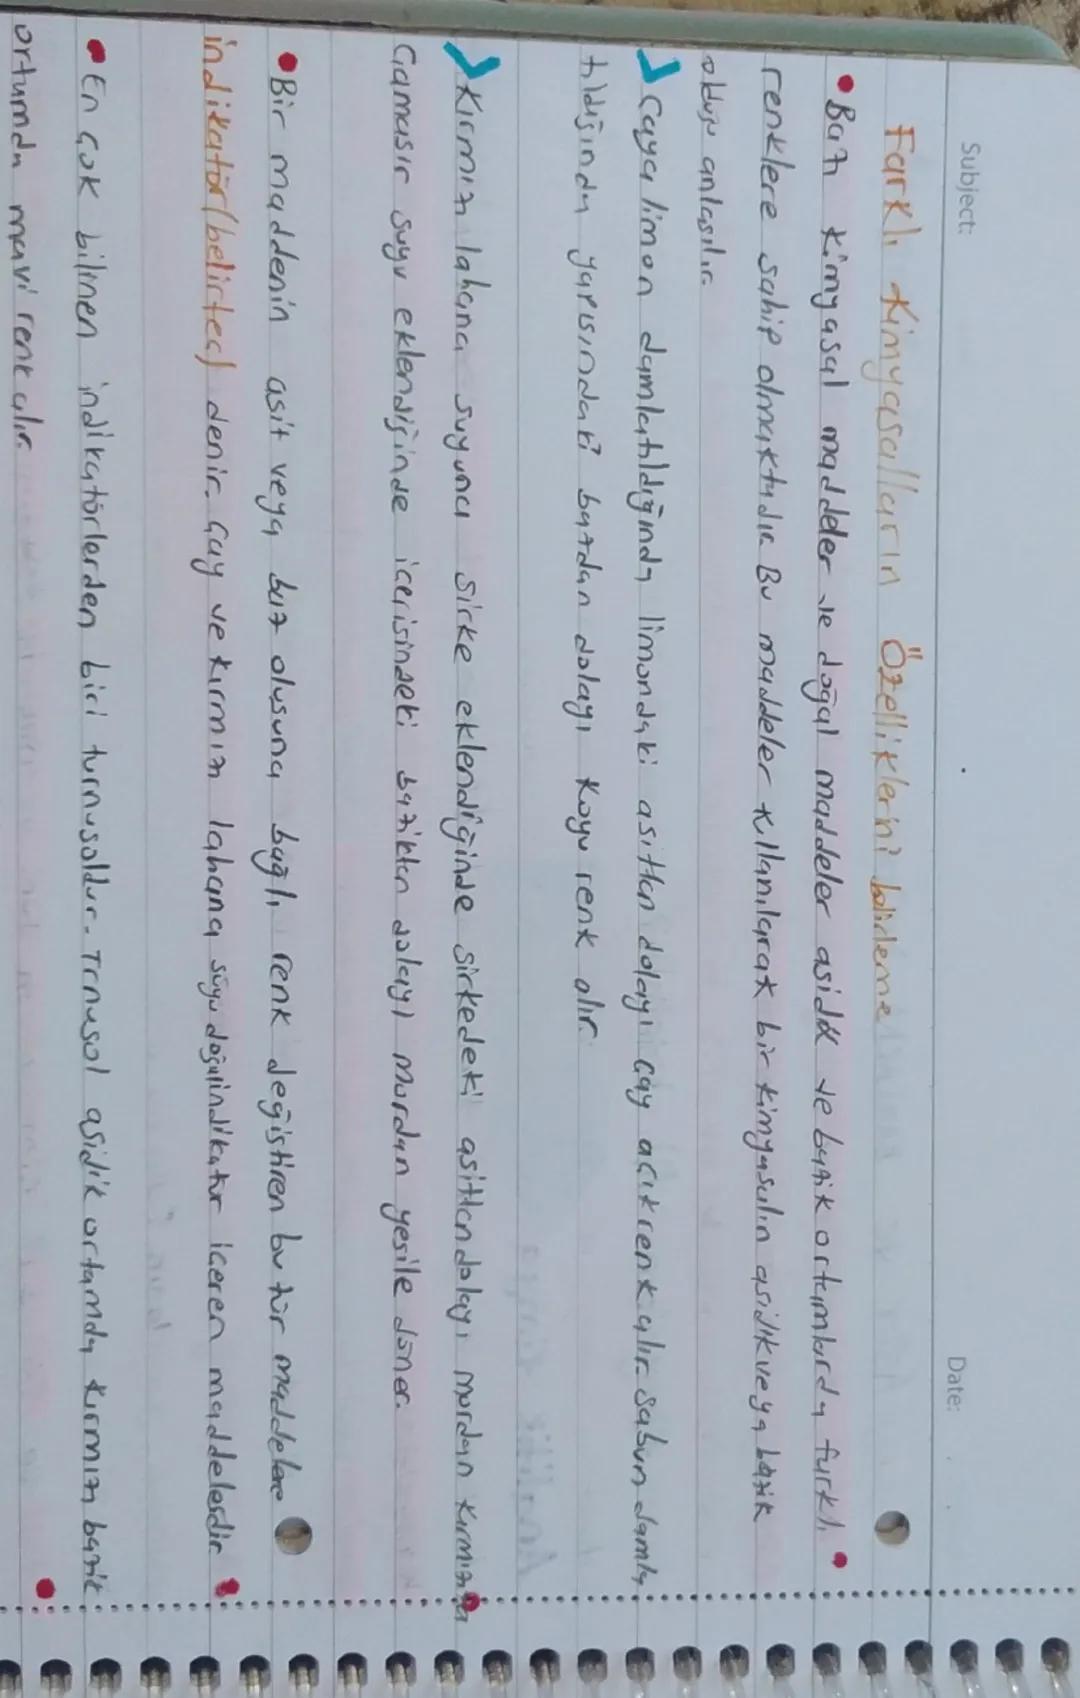 Subject: Date:
Farklı Kimyasalların Özelliklerni belirleme
• Bazı kimyasal maddeler ve doğal maddeler asidik ve bazik ortamlarda farklı
renklere sahip olmaktadır. Bu maddeler kullanılarak bir kimyasalın asidik veya bazik
olduğu anlaşılır.
Çaya limon damlatıldığında limondaki asitten dolayı çay açık renk alır. Sabun damla
tıldığında yapısındaki bazdan dolayı koyu renk alır.
Kırmızı lahana suyuna sirke eklendiğinde sirkedeki asitten dolayı mordan kırmızıya
Çamaşır suyu eklendiğinde içerisindeki bazikten dolayı mordan yeşile döner.
• Bir maddenin asit veya baz oluşuna bağlı renk değiştiren bu tür maddelere
indikatör (belirteç) denir. Çay ve kırmızı lahana suyu doğal indikatör içeren maddelerdir.
• En çok bilinen indikatörlerden biri turnusoldur. Trnusol asidik ortamda kırmızı bazik
ortamda mavi renk alır.